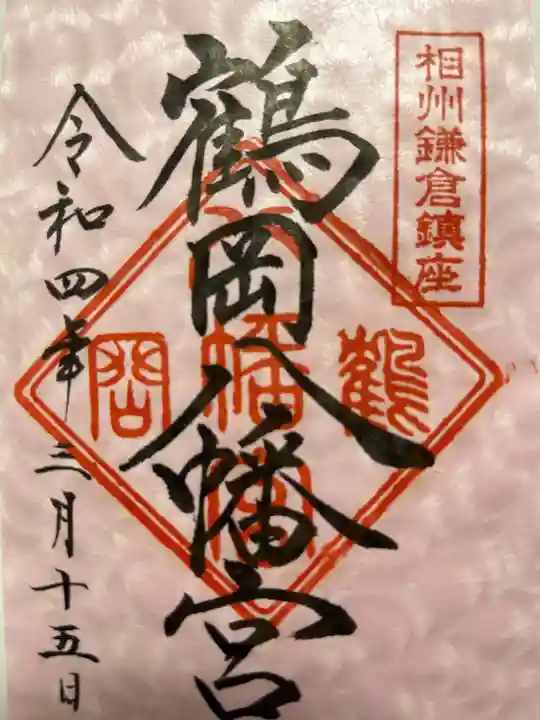 相州鎌倉鎮座
鶴岡八幡宮
鶴
岡
八
幡
宮
令和四年三月十五日